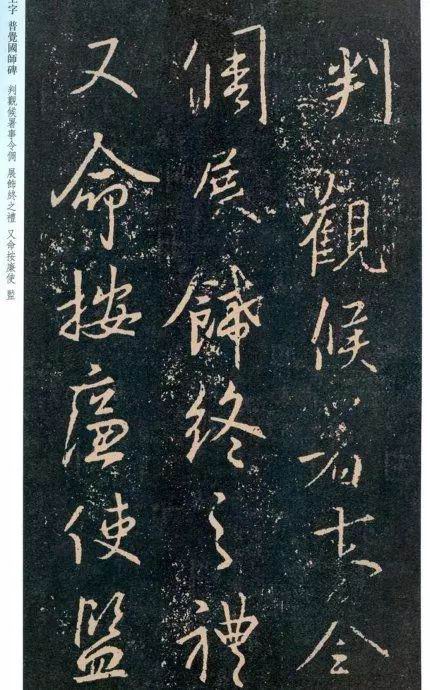 王字 普覺國師碑 判觀候署事令倜 展飾終之禮 又命按廉使 監
判觀候署事令
倜展飾終之禮
又命按廉使監